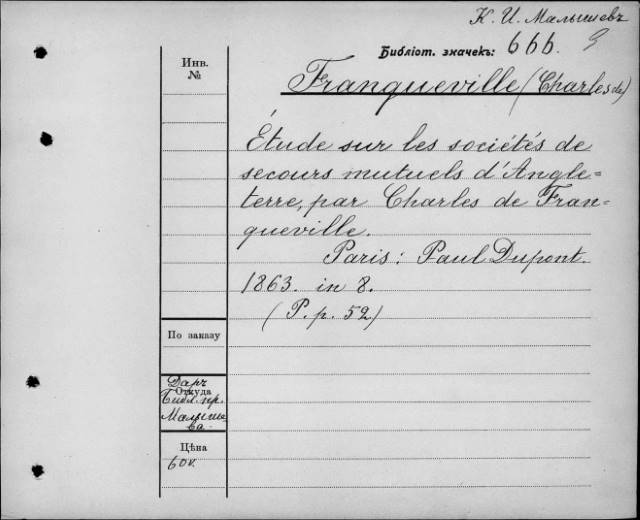 К. И. Малышевъ
Библіот. значекъ: 666.
Инв.
№
Franqueville (Charles de)
Étude sur les sociétés de
secours mutuels d'Angle=
terre, par Charles de Fran-
queville.
Paris: Paul Dupont.
1863. in 8.
(P.p. 52)
По заказу
Откуда
Даръ
Библ. пр.
Малыше
ва.
Цѣна
60к.